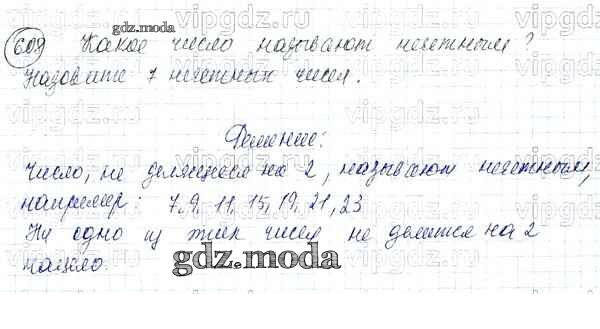 609 Какое число называют нечетным?
Назовите 7 нечетных чисел.
Решение:
Число, не делящееся на 2, называют нечетным,
например: 7, 9, 11, 15, 19, 21, 23
Ни одно из этих чисел не делится на 2
нацело.
gdz.moda
gdz.moda
vipgdz.ru